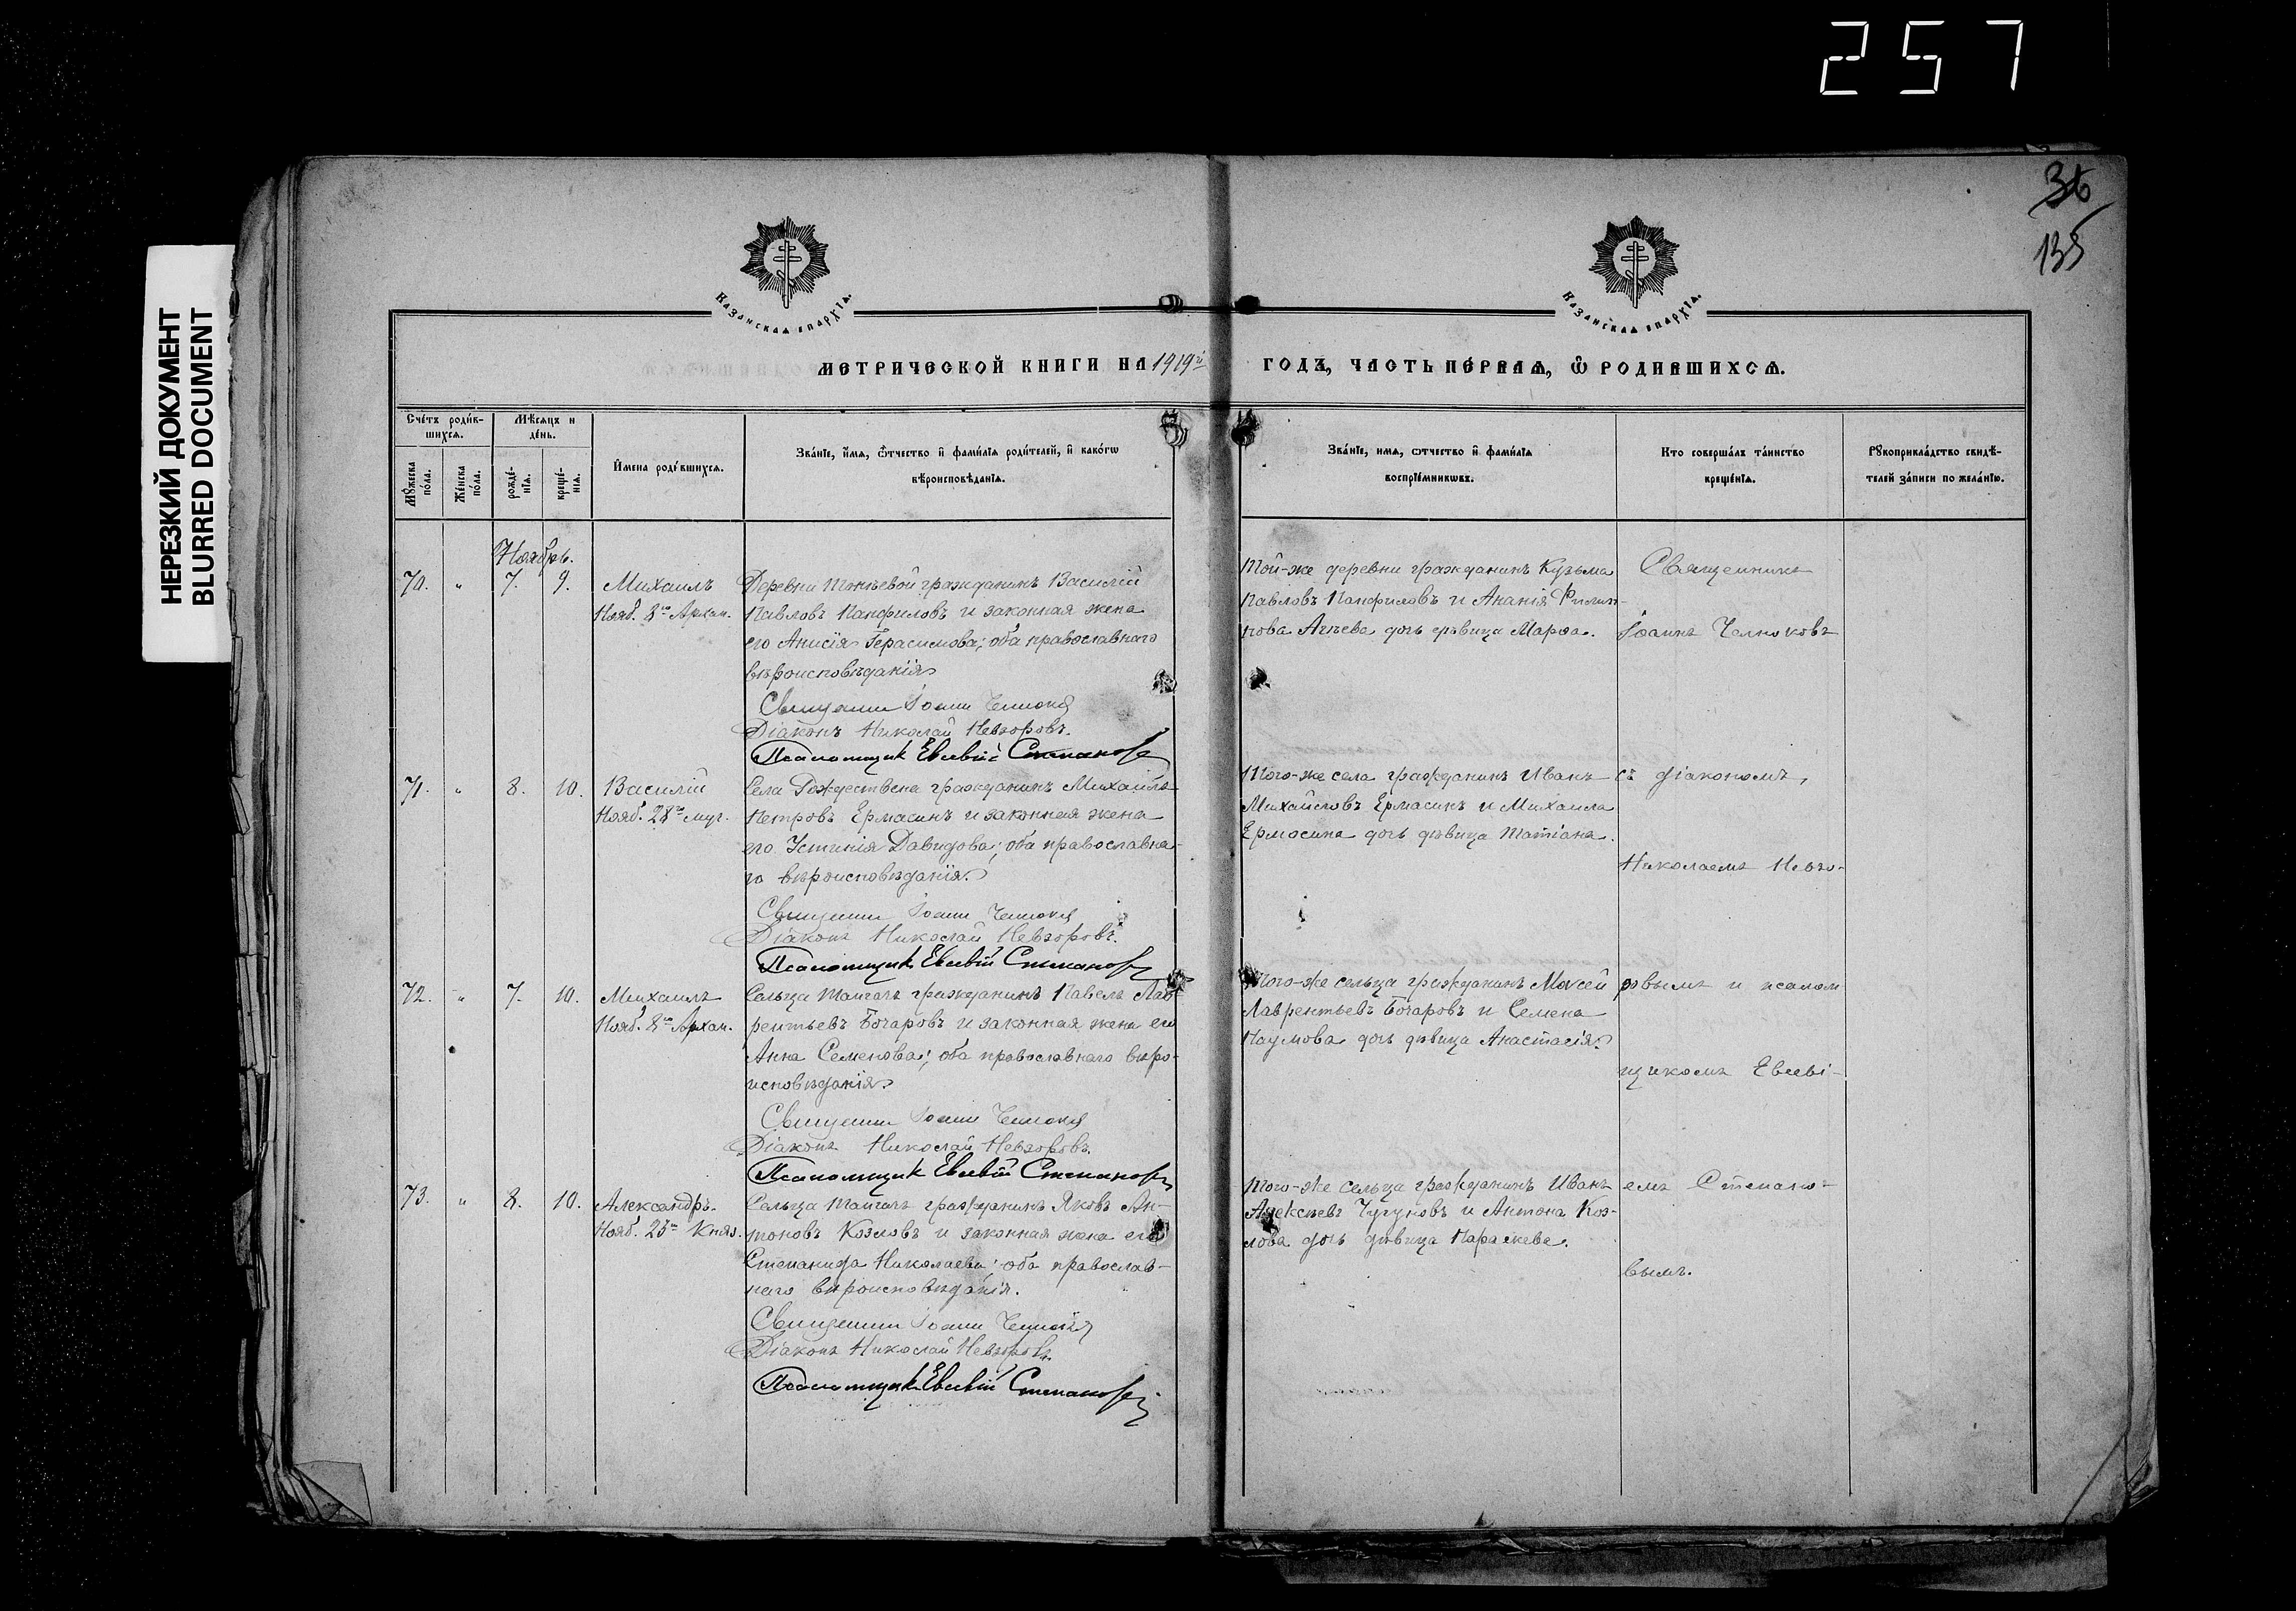 257
36
135
НЕРЕЗКИЙ ДОКУМЕНТ
BLURRED DOCUMENT
Казанская епархїѧ.
Казанская епархїѧ.
МЕТРИЧЕСКОЙ КНИГИ НА 1919й ГОДЪ, ЧАСТЬ ПЕ́РВАѦ, Ѡ҆ РОДИВШИХСѦ.
Сче́тъ роди́вшихсѧ.
Мꙋ́жеска по́ла.
Же́нска по́ла.
Мѣ́сѧцъ и де́нь.
рожде́нїѧ.
креще́нїѧ.
И҆мена роди́вшихсѧ.
Зва́нїе, и҆́мѧ, ѻ҆́тчество и҆ фами́лїѧ роди́телей, и҆ како́гѡ вѣроисповѣ́данїѧ.
Зва́нїе, имѧ, ѻтчество и҆ фами́лїѧ воспрїе́мникѡвъ.
Кто соверша́лъ та́инство креще́нїѧ.
Рꙋкоприкла́дство свидѣ́телей за́писи по жела́нїю.
Ноябрь.
70. " 7. 9. Михаилъ
Нояб. 8го Архан.
Деревни гражданинъ Василій
Павловъ Панфиловъ и законная жена
его Анисія Герасимова; оба православнаго
вѣроисповѣданія
Священн Іоанн Челноков
Діаконъ Николай Невзоровъ.
Псаломщик Евсевій Степановъ
Той-же деревни гражданинъ Кузьма
Павловъ Панфиловъ и Ананія Филип-
пова Агѣева дочь дѣвица Марѳа.
Священникъ
Іоаннъ Челноковъ
71. " 8. 10. Василій
Нояб. 28го муч.
Села Рождествена гражданинъ Михаилъ
Петровъ Ермасинъ и законная жена
его Устинія Давидова; оба православна-
го вѣроисповѣданія.
Священн Іоанн Челноков
Діаконъ Николай Невзоровъ.
Псаломщик Евсевій Степановъ
Того-же села гражданинъ Иванъ
Михайловъ Ермасинъ и Михаила
Ермасина дочь дѣвица Татіана.
съ діакономъ,
Николаемъ Невзо-
72. " 7. 10. Михаилъ
Нояб. 8го Архан.
Сельца гражданинъ Павелъ Лав-
рентьевъ Бочаровъ и законная жена его
Анна Семенова; оба православнаго вѣро-
исповѣданія.
Священн Іоанн Челноков
Діаконъ Николай Невзоровъ.
Псаломщик Евсевій Степановъ
Того-же сельца гражданинъ Моѵсей
Лаврентьевъ Бочаровъ и Семена
Наумова дочь дѣвица Анастасія.
ровымъ и псалом
щикомъ Евсеві-
73. " 8. 10. Александръ.
Нояб. 23го Княз.
Сельца гражданинъ Яковъ Ан-
тоновъ Козловъ и законная жена его
Степанида Николаева; оба православ-
наго вѣроисповѣданія.
Священн Іоанн Челноков
Діаконъ Николай Невзоровъ.
Псаломщик Евсевій Степановъ
Того-же сельца гражданинъ Иванъ
Алексѣевъ Чугуновъ и Антона Коз-
лова дочь дѣвица Параскева.
емъ Степано-
вымъ.